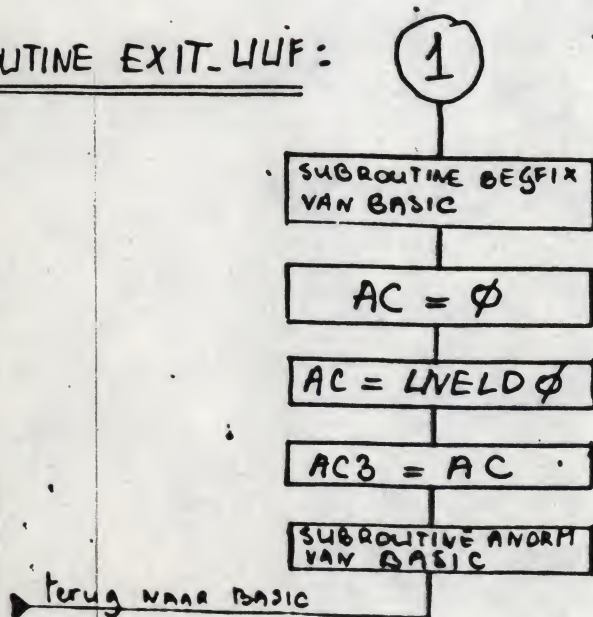 UTINE EXIT_UUF:
1
SUBROUTINE BEGFIX
VAN BASIC
AC = Ø
AC = LNVELD Ø
AC3 = AC
SUBROUTINE ANORM
VAN BASIC
terug NAAR BASIC